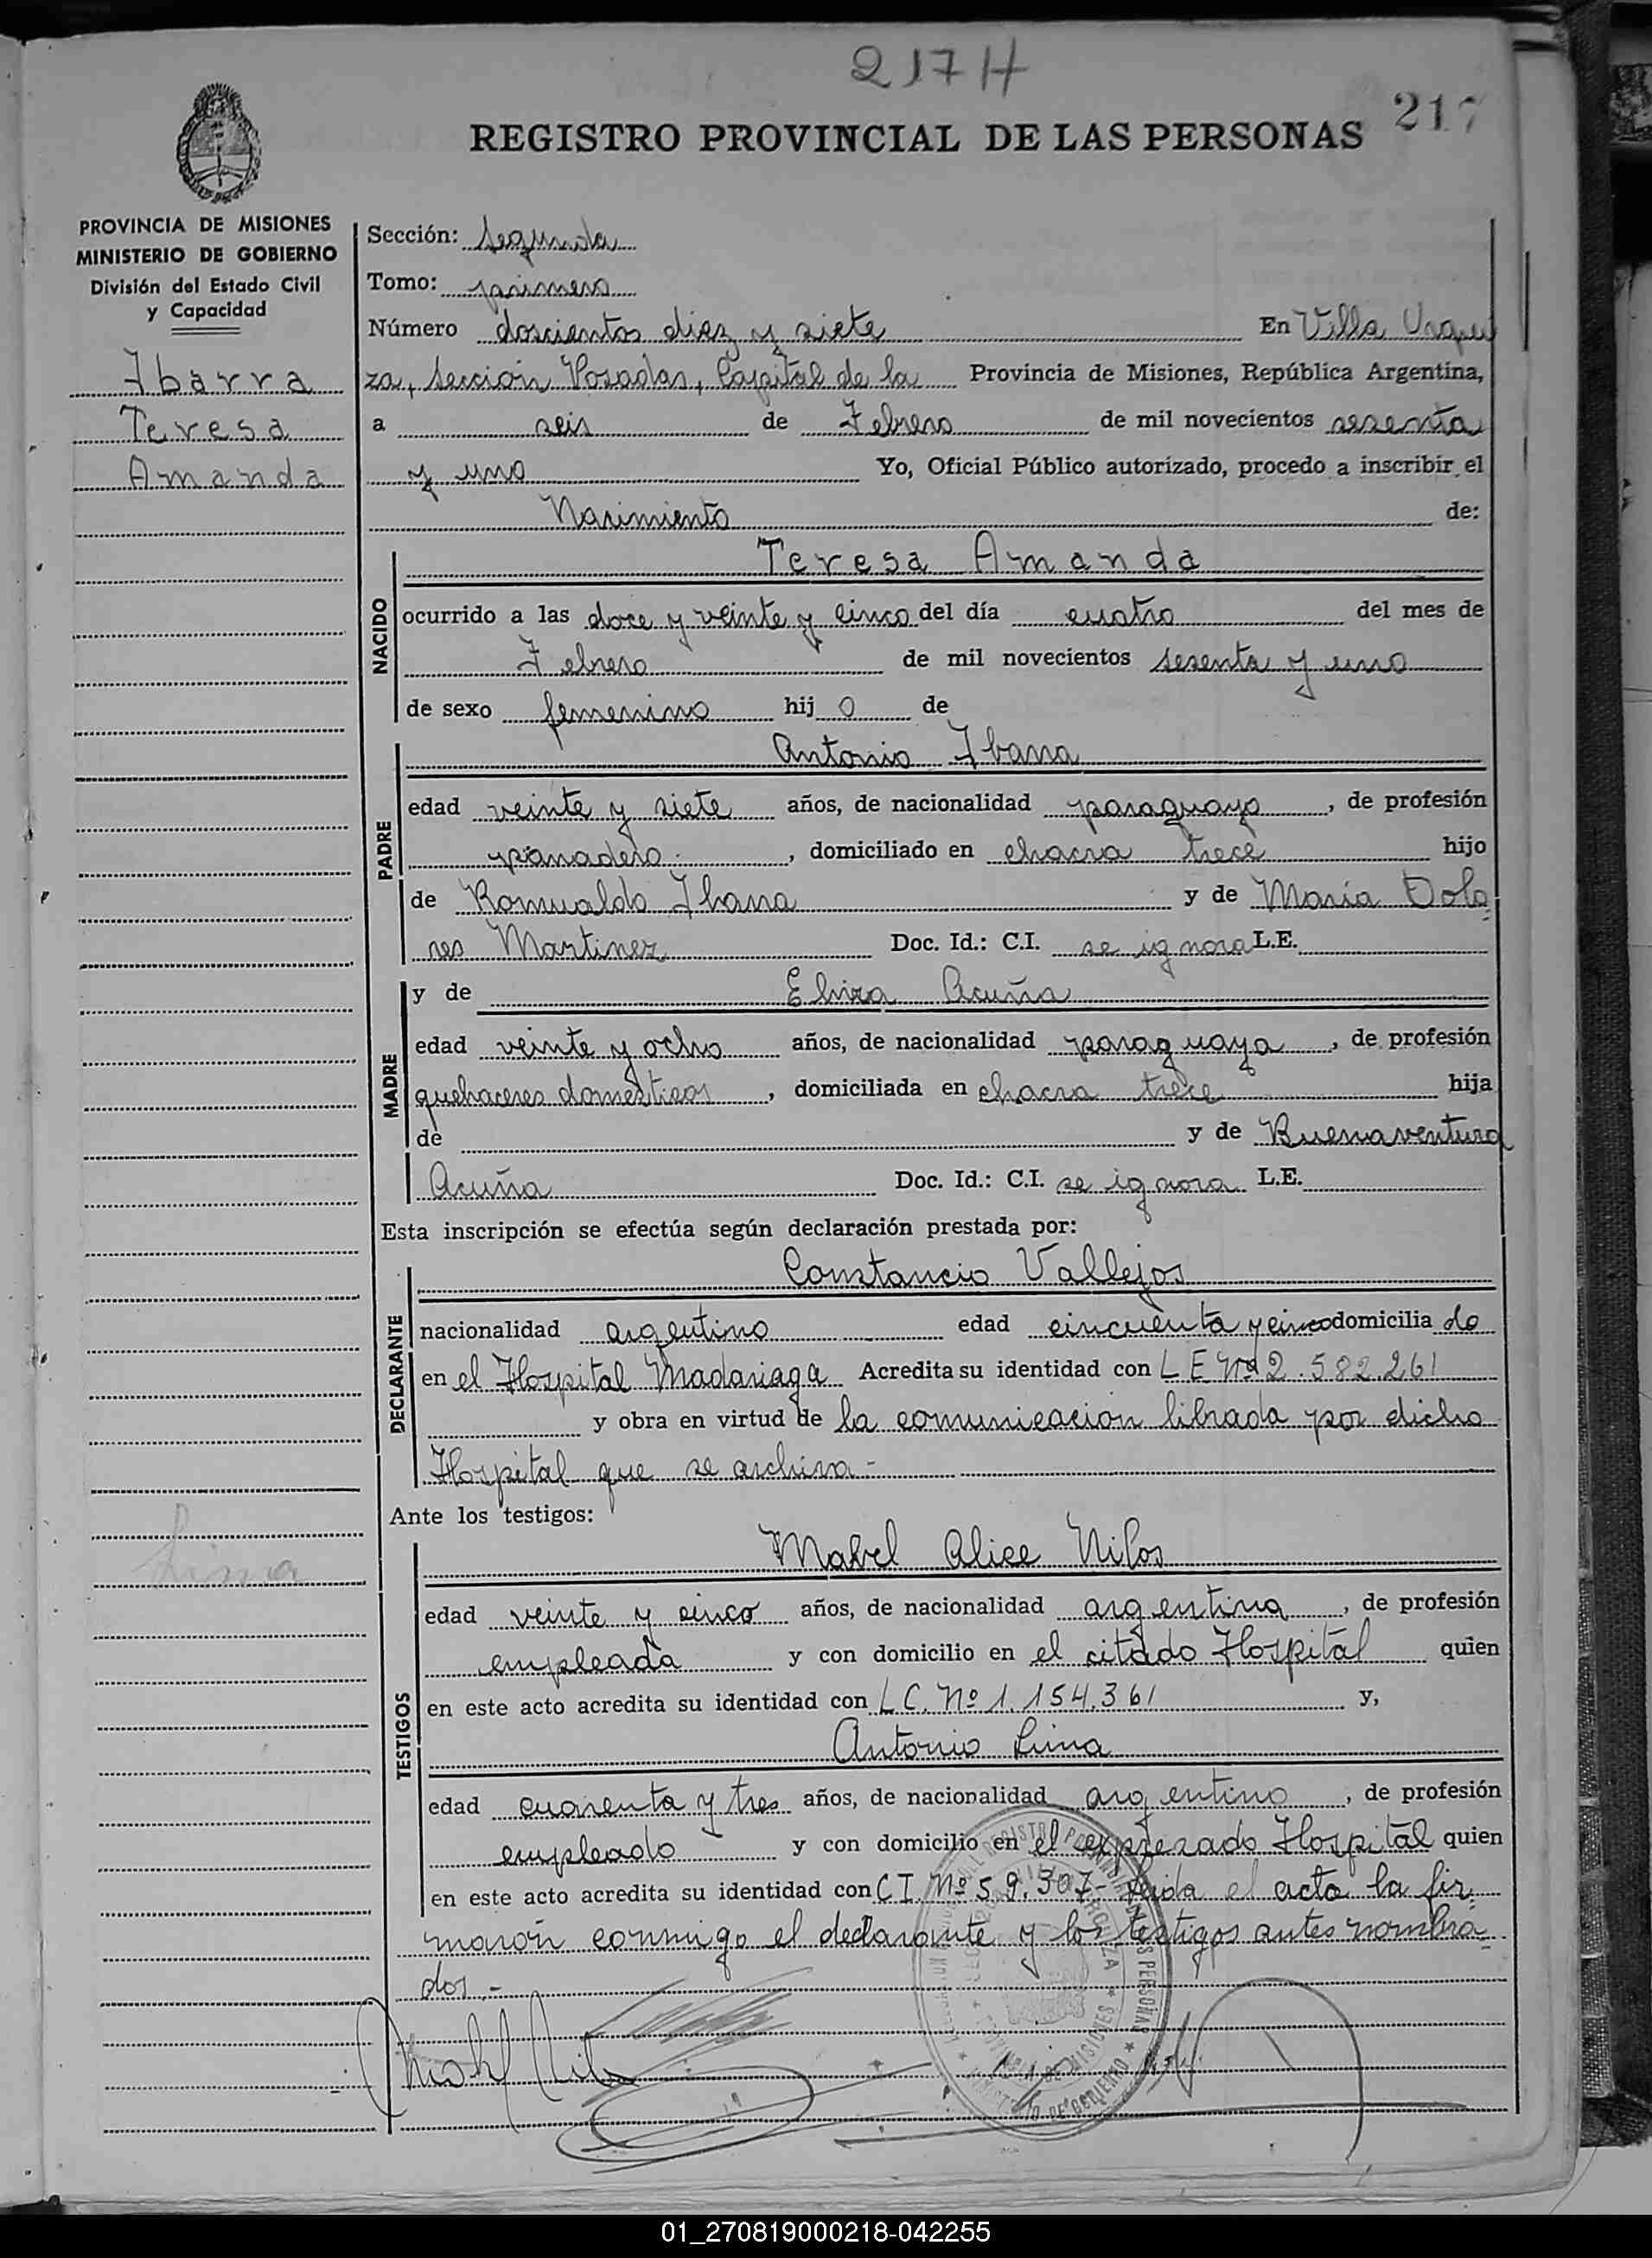 217 H
217
REGISTRO PROVINCIAL DE LAS PERSONAS
PROVINCIA DE MISIONES
MINISTERIO DE GOBIERNO
División del Estado Civil
y Capacidad
Ibarra
Teresa
Amanda
Sección: Segunda
Tomo: primero
Número doscientos diez y siete En Villa Urqui
za, Sección Posadas, Capital de la Provincia de Misiones, República Argentina,
a seis de Febrero de mil novecientos sesenta
y uno Yo, Oficial Público autorizado, procedo a inscribir el
Nacimiento de:
NACIDO
Teresa Amanda
ocurrido a las doce y veinte y cinco del día cuatro del mes de
Febrero de mil novecientos sesenta y uno
de sexo femenino hij o de
PADRE
Antonio Ibarra
edad veinte y siete años, de nacionalidad paraguayo, de profesión
panadero, domiciliado en chacra trece hijo
de Romualdo Ibarra y de María Dolo
res Martinez Doc. Id.: C.I. se ignora L.E.
MADRE
y de Elvira Acuña
edad veinte y ocho años, de nacionalidad paraguaya, de profesión
quehaceres domésticos, domiciliada en chacra trece hija
de y de Buenaventura
Acuña Doc. Id.: C.I. se ignora L.E.
Esta inscripción se efectúa según declaración prestada por:
DECLARANTE
Constancio Vallejos
nacionalidad argentino edad cincuenta y cinco domicilia do
en el Hospital Madariaga Acredita su identidad con L E Nº 2.582.261
y obra en virtud de la comunicación librada por dicho
Hospital que se archiva-
Ante los testigos:
Lima
TESTIGOS
Mabel Alice Nilos
edad veinte y cinco años, de nacionalidad argentina, de profesión
empleada y con domicilio en el citado Hospital quien
en este acto acredita su identidad con L C. Nº 1.154.361 y,
Antonio Lima
edad cuarenta y tres años, de nacionalidad argentino, de profesión
empleado y con domicilio en el expresado Hospital quien
en este acto acredita su identidad con C I. Nº 59.307- Leida el acta la fir
marón conmigo el declarante y los testigos antes nombra
dos.-
01_270819000218-042255